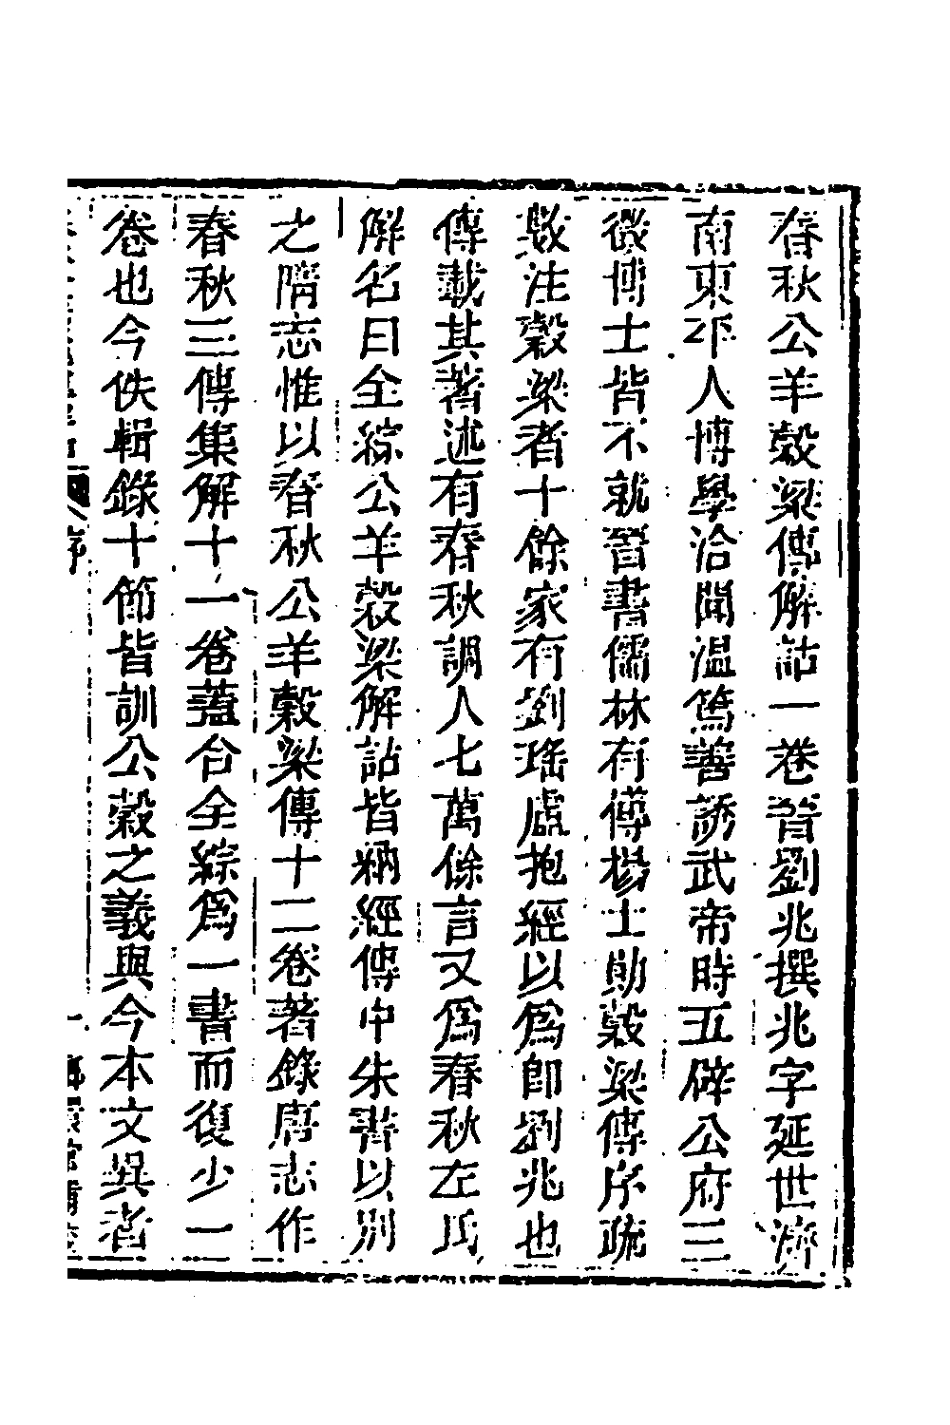 春秋公羊穀梁傳解詁一卷晉劉兆撰兆字延世濟
南東平人博學洽聞温篤善誘武帝時五辟公府三
徵博士皆不就晉書儒林有傳楊士勛穀梁傳序疏
數注穀梁者十餘家有劉瑤虛抱經以爲即劉兆也
傳載其著述有春秋調人七萬餘言又爲春秋左氏
解名曰全綜公羊穀梁解詁皆納經傳中朱書以別
之隋志惟以春秋公羊穀梁傳十二卷著錄唐志作
春秋三傳集解十一卷蓋合全綜爲一書而復少一
卷也今佚輯錄十節皆訓公穀之義與今本文異者
序